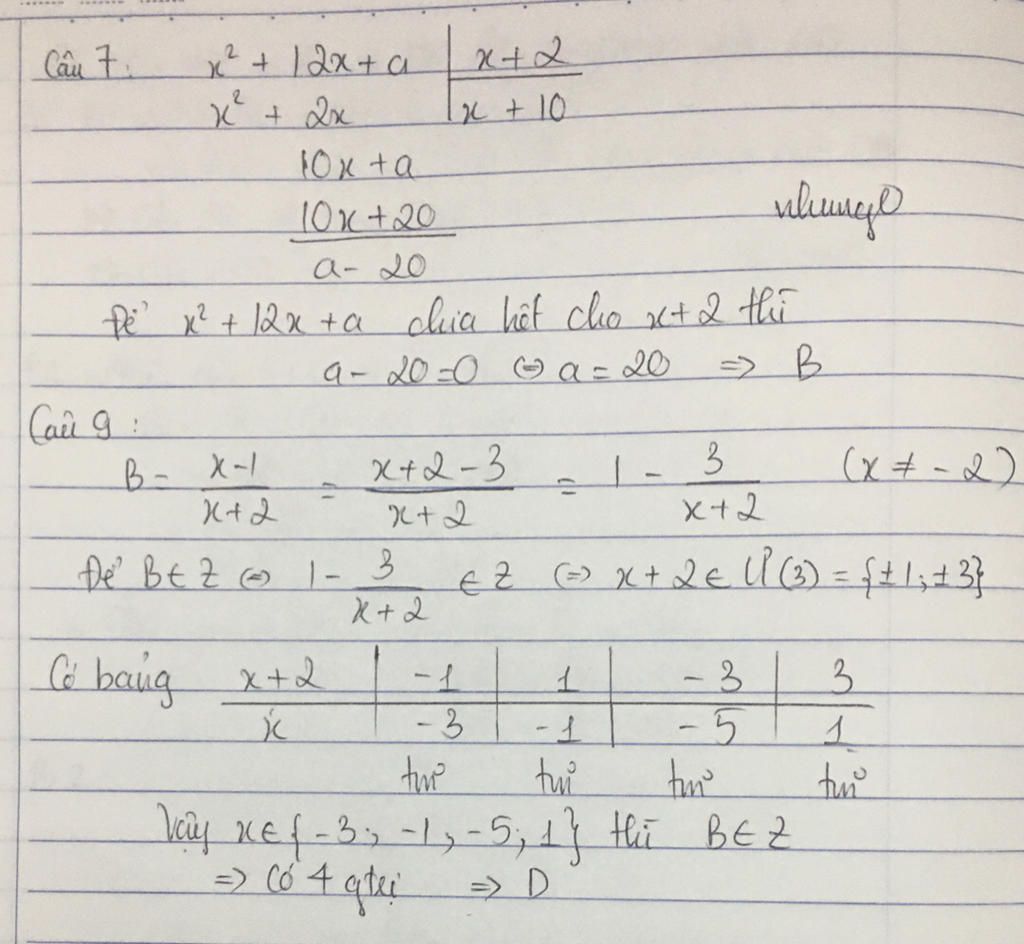 Câu 7: x² + 12x + a | x + 2
x² + 2x | x + 10
10x + a
10x + 20
nhungo
a - 20
Để x² + 12x + a chia hết cho x + 2 thì
a - 20 = 0 ⇔ a = 20 ⇒ B
Câu 9:
B = (x-1)/(x+2) = (x+2-3)/(x+2) = 1 - 3/(x+2) (x ≠ -2)
Để B ∈ Z ⇔ 1 - 3/(x+2) ∈ Z ⇔ x + 2 ∈ Ư(3) = {±1; ±3}
Có bảng x+2 | -1 | 1 | -3 | 3
x | -3 | -1 | -5 | 1
tm tm tm tm
Vậy x ∈ {-3; -1; -5; 1} thì B ∈ Z
⇒ Có 4 gtrị ⇒ D